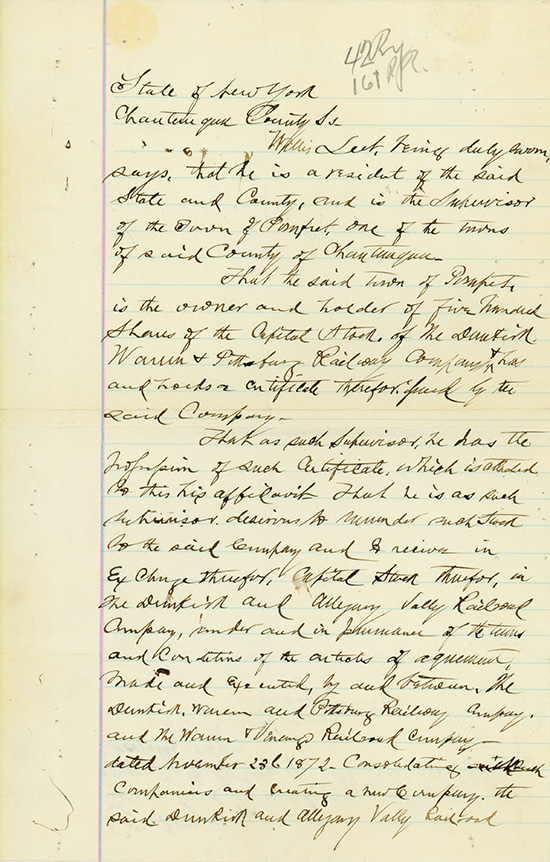 42
167
State of New York
Chautauqua County Ss
Willis Leet, being duly sworn,
says, that he is a resident of the said
State and County, and is the Supervisor
of the Town of Pomfret, one of the towns
of said County of Chautauqua
That the said town of Pomfret,
is the owner and holder of five hundred
Shares of the Capital Stock, of The Dunkirk.
Warren & Pittsburg Railway Company & has
and holds a certificate therefor issued by the
said Company.
That as such Supervisor, he has the
possession of such Certificate, which is attached
to this his affidavit That he is as such
supervisor, desirous to surrender such Stock
to the said Company and to receive in
Exchange therefor, Capital Stock therefor, in
the Dunkirk and Allegany Vally Railroad
Company, under and in pursuance of the terms
and Conditions of the articles of agreement,
Made and Executed, by and between, The
Dunkirk, Warren and Pittsburg Railway Company.
and The Warren & Venango Railroad Company
dated November 23d 1872 - Consolidating
Companies and creating a new Company. the
said Dunkirk and Allegany Vally Railroad